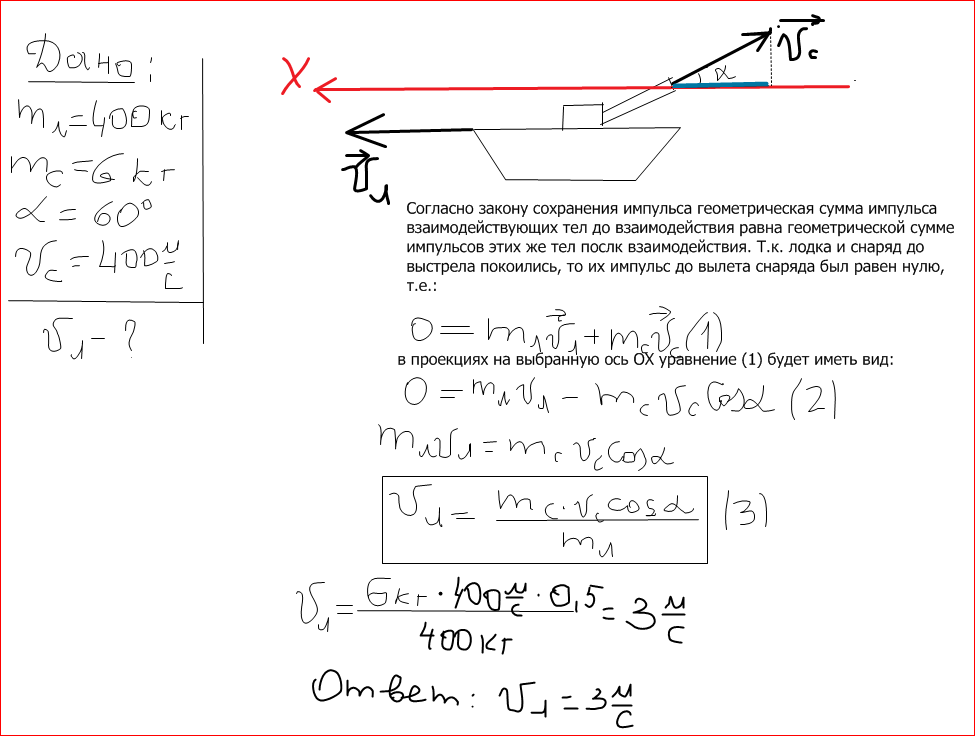 Дано:
mл=400кг
mс=6кг
α=60°
vс=400м/с
vл-?
X
vс
α
vл
Согласно закону сохранения импульса геометрическая сумма импульса
взаимодействующих тел до взаимодействия равна геометрической сумме
импульсов этих же тел послк взаимодействия. Т.к. лодка и снаряд до
выстрела покоились, то их импульс до вылета снаряда был равен нулю,
т.е.:
0=mлvл+mсvс(1)
в проекциях на выбранную ось OX уравнение (1) будет иметь вид:
0=mлvл-mсvсCosα(2)
mлvл=mсvсcosα
vл=mс·vсcosα/mл (3)
vл=6кг·400м/с·0,5/400кг=3м/с
Ответ: vл=3м/с